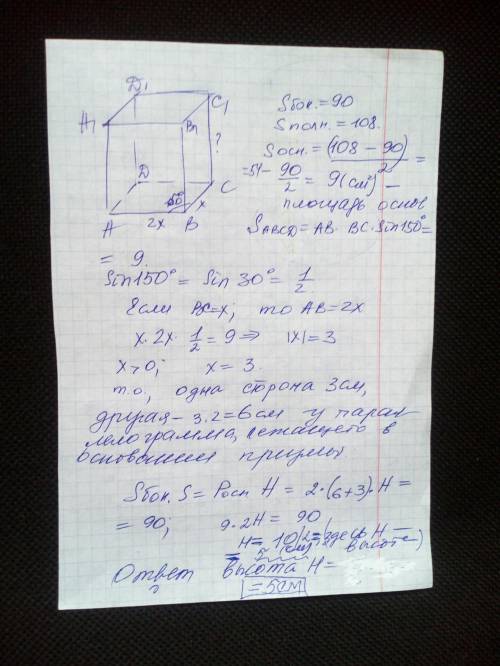 D₁
C₁
A₁
B₁
?
D
150°
C
x
A
2x
B
Sбок. = 90
Sполн. = 108.
Sосн. = (108 – 90)/2 =
= 54 – 90/2 = 9 (см²) –
площадь основ
SABCD = AB · BC · Sin150° =
= 9.
Sin150° = Sin 30° = 1/2
Если BC = x; то AB = 2x
x · 2x · 1/2 = 9 ⇒ |x| = 3
x > 0; x = 3.
т.о, одна сторона 3 см,
другая – 3·2 = 6 см у парал
лелограмма, лежащего в
основании призмы
Sбок. S = Pосн H = 2·(6+3)·H =
= 90; 9·2H = 90
H = 10/2 = (здесь H –
= 5 (см) высота)
Ответ высота H =
= 5 см